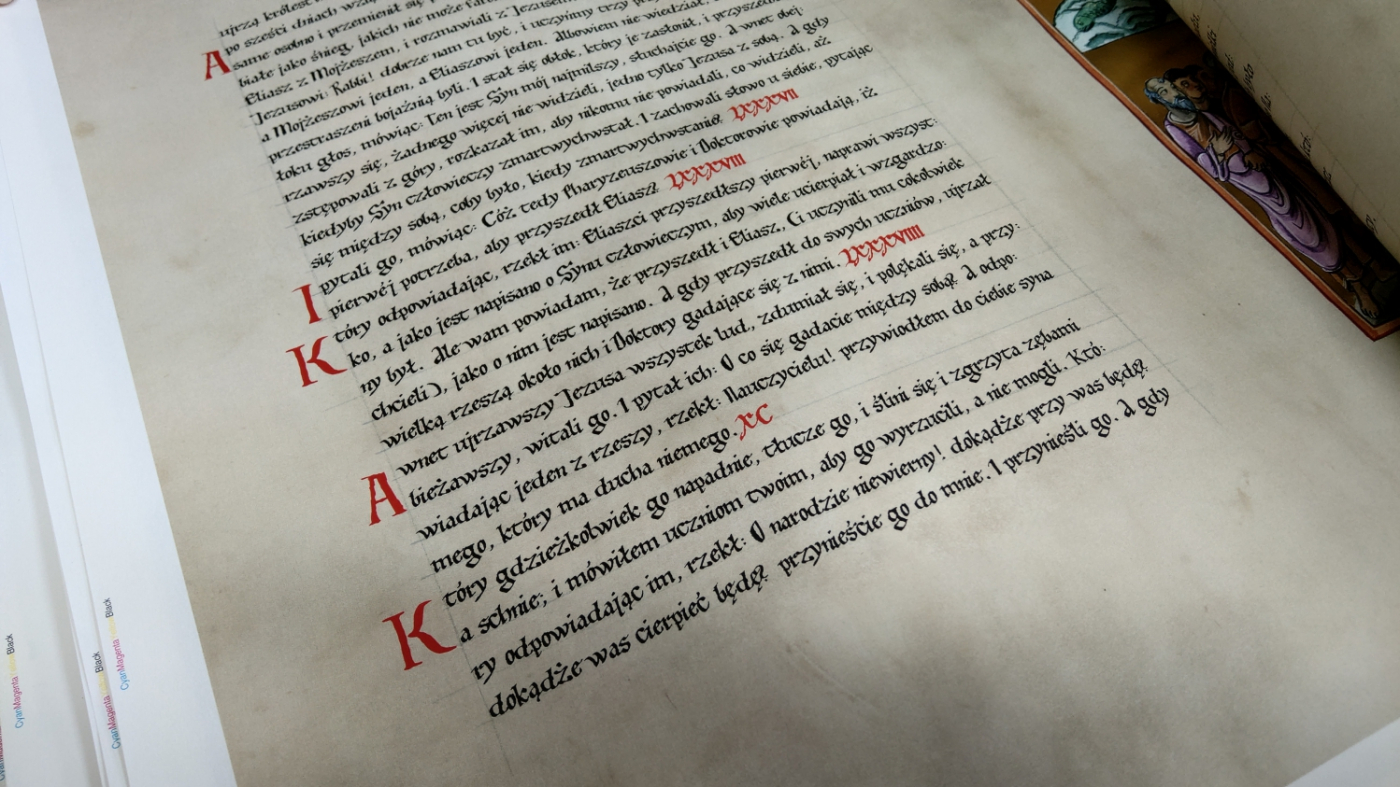 ujrzą królest
po sześci dniach
same osobno i przemienił się
białe jako śnieg, jakich nie może
Eliasz z Mojżeszem, i rozmawiali z Jezusem
Jezusowi: Rabbi! dobrze nam tu być, i uczyńmy trzy
a Mojżeszowi jeden, a Eliaszowi jeden. Albowiem nie wiedział
przestraszeni bojaźnią byli. I stał się obłok, który je zasłonił, i przyszedł
łoku głos, mówiąc: Ten jest Syn mój najmilszy, słuchajcie go. A wnet obej:
rzawszy się, żadnego więcej nie widzieli, jedno tylko Jezusa z sobą. A gdy
zstępowali z góry, rozkazał im, aby nikomu nie powiadali, co widzieli, aż
kiedyby Syn człowieczy zmartwychwstał. I zachowali słowo u siebie, pytając
się między sobą, coby było, kiedy zmartwychwstanie? LXXXVII
Ipytali go, mówiąc: Cóż tedy Pharyzeuszowie i Doktorowie powiadają, iż
pierwéj potrzeba, aby przyszedł Eliasz? LXXXVIII
Który odpowiadając, rzekł im: Eliaszci przyszedłszy pierwéj, naprawi wszyst:
ko, a jako jest napisano o Synu człowieczym, aby wiele ucierpiał i wzgardzo:
ny był. Ale wam powiadam, że przyszedł i Eliasz, (i uczynili mu cokolwiek
chcieli), jako o nim jest napisano. A gdy przyszedł do swych uczniów, ujrzał
wielką rzeszą około nich i Doktory gadające się z nimi. LXXXVIIII
A wnet ujrzawszy Jezusa wszystek lud, zdumiał się, i polękali się, a przy:
bieżawszy, witali go. I pytał ich: O co się gadacie między sobą? A odpo:
wiadając jeden z rzeszy, rzekł: Nauczycielu! przywiodłem do ciebie syna
mego, który ma ducha niemego. XC
Który gdzieżkolwiek go napadnie, tłucze go, i ślini się i zgrzyta zębami
a schnie; i mówiłem uczniom twoim, aby go wyrzucili, a nie mogli. Któ:
ry odpowiadając im, rzekł: O narodzie niewierny! dokądże przy was będę?
dokądże was cierpieć będę? przynieście go do mnie. I przynieśli go. A gdy
CyanMagenta Black
CyanMagenta Black
CyanMagenta Black